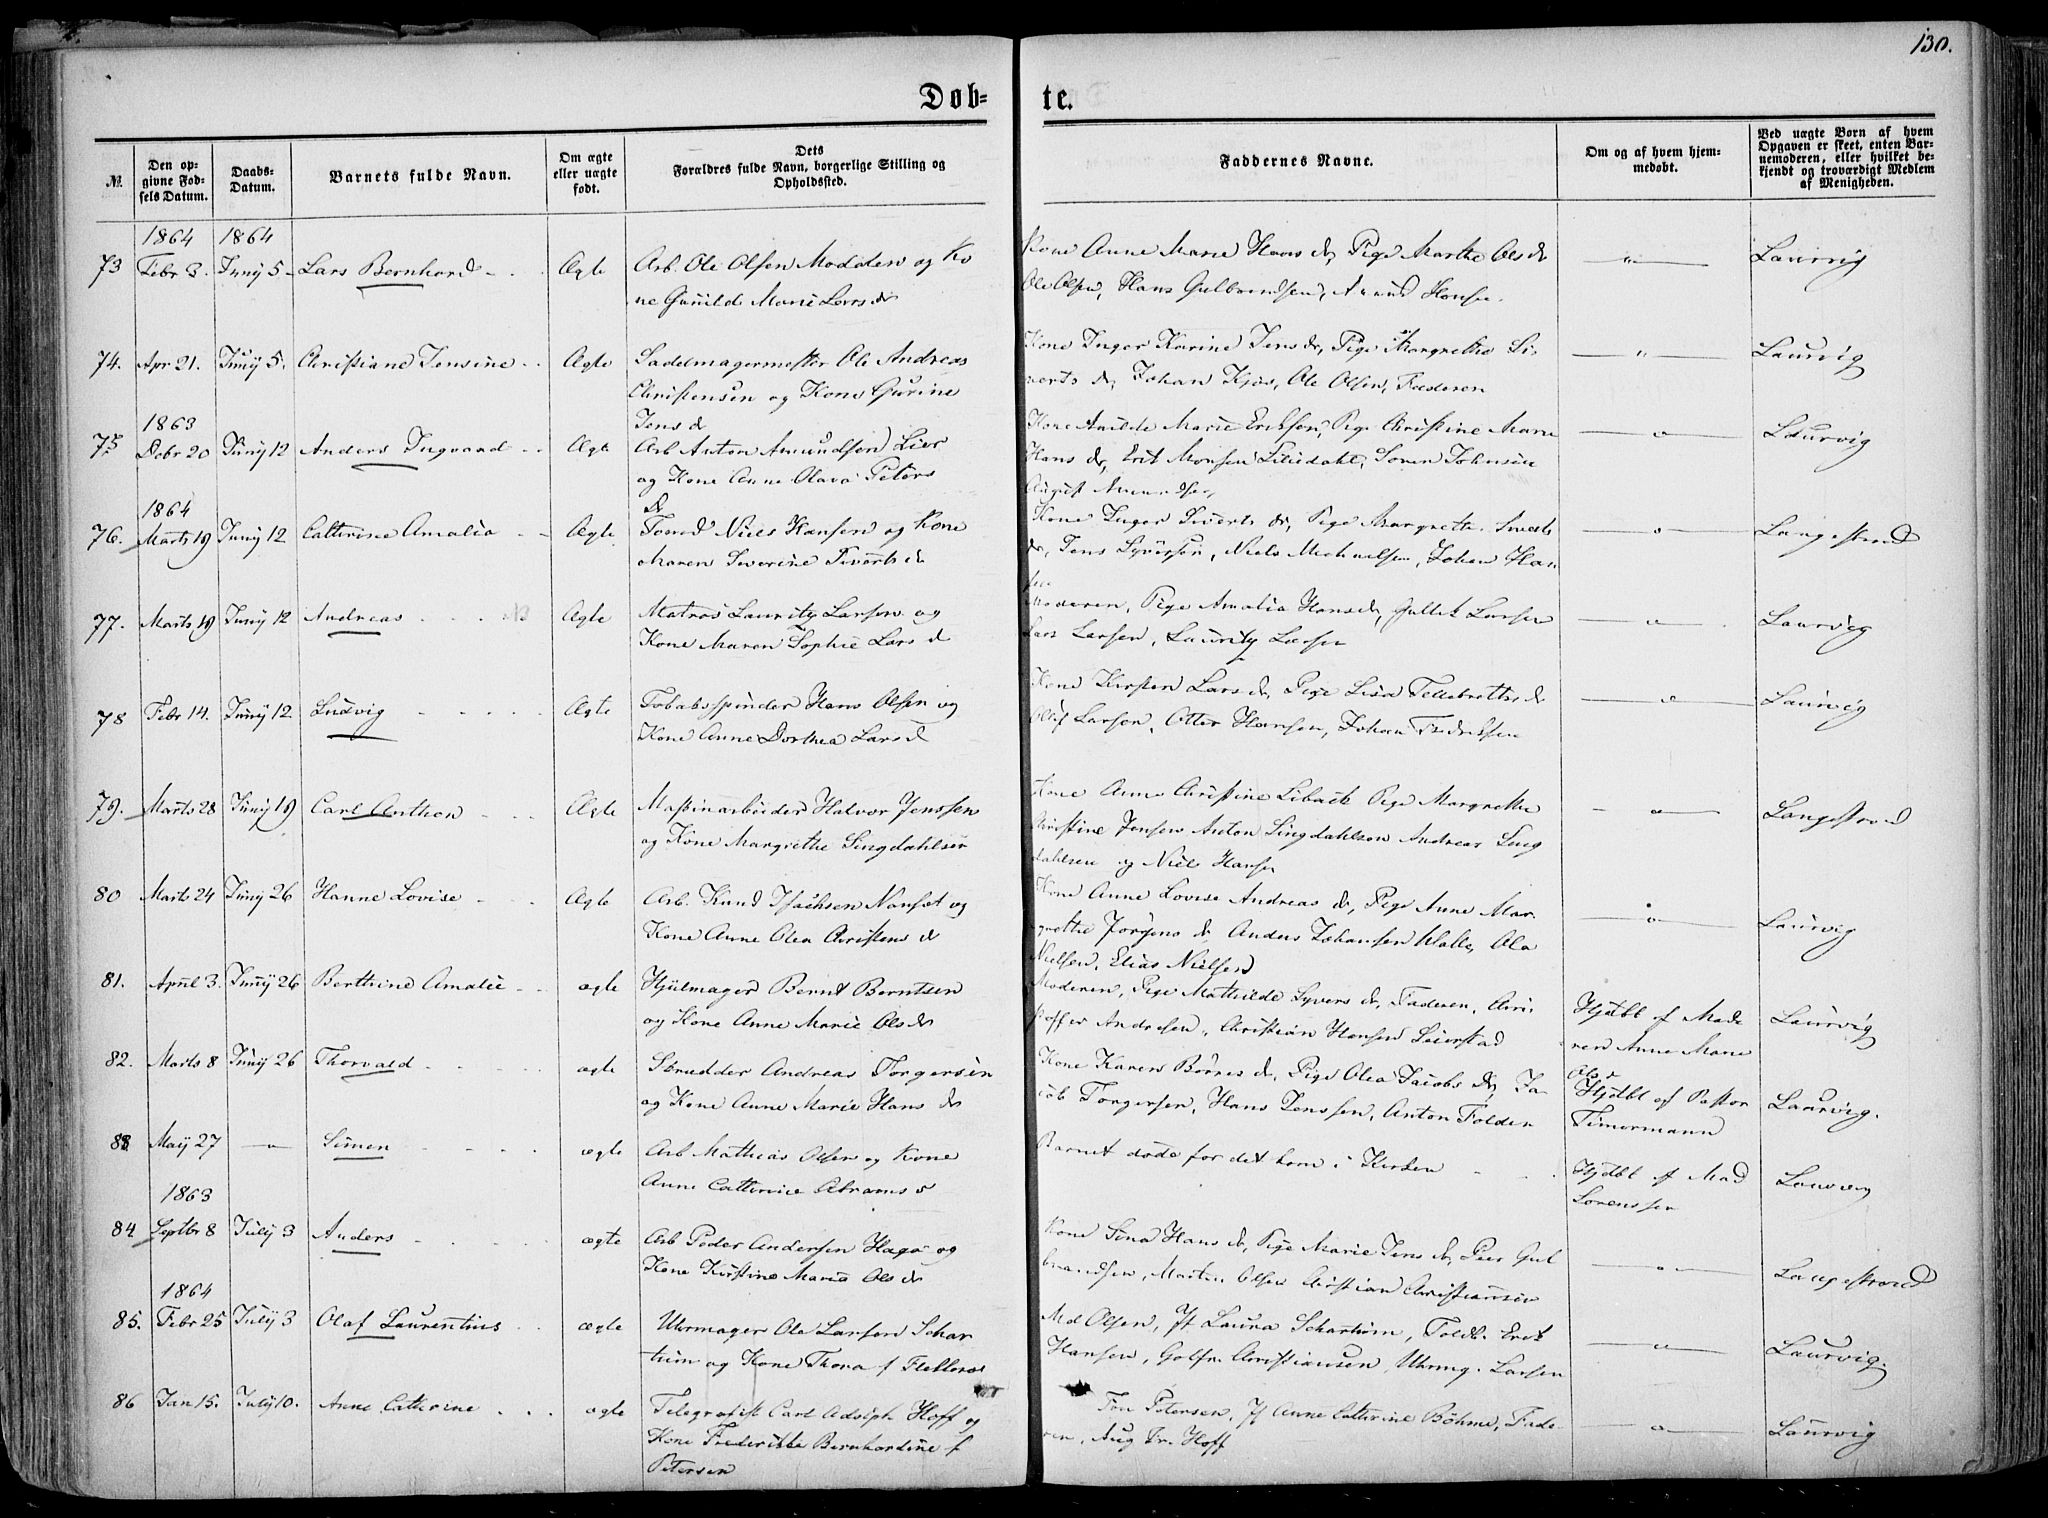 130.
Døb-
te.
№
Den op-
givne Fød-
sels Datum.
Daabs-
Datum.
Barnets fulde Navn.
Om ægte
eller uægte
født.
Dets
Forældres fulde Navn, borgerlige Stilling og
Opholdssted.
Faddernes Navne.
Om og af hvem hjem-
medøbt.
Ved uægte Børn af hvem
Opgaven er skeet, enten Bar-
nemoderen, eller hvilket be-
kjendt og troværdigt Medlem
af Menigheden.
1864 1864
73 Febr 3. Juny 5 Lars Bernhard Ægte Arb. Ole Olsen Modden og Ko
ne Gunild Marie Lars dr
Kone Anne Marie Hans dr, Pige Marthe Ols dr
Ole Olsen, Hans Gulbrandsen, Hansen.
" Laurvig
74. Apr 21. Juny 5. Christiane Jensine Ægte Sadelmagermester Ole Andreas
Christensen og Kone Gurine
Jens d
Kone Inger Karine Jens dr, Pige Margrethe Si-
verts dr, Johan Kjøs, Ole Olsen, Faderen
" Laurvig
1863
75 Debr 20 Juny 12 Anders Ingvard Ægte Arb Anton Amundsen Lier
og Kone Anne Olava Peters
dr
Kone Marie Eriksen, Pige Christine Marie
Hans dr, Erik Monsen Liledahl, Soren Johnsen
August Amundsen
o Laurvig
1864
76. Marts 19 Juny 12 Cathrine Amalia Ægte Niels Hansen og Kone
Maren Severine Siverts dr
Kone Inger Siverts dr, Pige Margrethe Siverts
dr, Jens Syversen, Niels Michaelsen, Johan Han
sen
o Langestrand
77. Marts 19 Juny 12 Andreas Ægte Matros Lauritz Larsen og
Kone Maren Sophie Lars d
Moderen, Pige Amalia Hans dr, Gullik Larsen
Lars Larsen, Lauritz Larsen
o Laurvig
78 Febr 14. Juny 12 Ludvig Ægte Tobaksspinder Hans Olsen og
Kone Anne Dorthea Lars d
Kone Kirsten Lars dr, Pige Lisa Tellebretts dr
Oluf Larsen, Otter Hansen, Johan Fredriksen
o Laurvig
79. Marts 28 Juny 19 Carl Anthon Ægte Maskinarbeider Halvor Jenssen
og Kone Margrethe Singdahlsen
Kone Anne Christine Libäck Pige Margrethe
Christine Jensen Anton Singdahlsen Andreas Sing
dahlsen og Niels Hansen
o Langestrand
80 Marts 24 Juny 26 Hanne Lovise Ægte Arb. Knud Isachsen Nanset og
Kone Anne Olea Christens d
Kone Anne Lovise Andreas dr, Pige Anne Mar-
grethe Jørgens dr Anders Johansen Ole
Nielsen, Elias Nielsen
o Laurvig
81. April 3. Juny 26 Berthine Amalie ægte Hjulmager Bernt Berntsen
og Kone Anne Marie Ols dr
Moderen, Pige Mathilde Syvers dr, Faderen, Chri-
stoffer Andresen, Christian Hansen Seierstad
Hjdbt af Mode
ren Anne Marie
Ols d
Laurvig
82. Marts 8 Juny 26 Thorvald ægte Skrædder Andreas Torgersen
og Kone Anne Marie Hans dr
Kone Karen Børres dr, Pige Olea Jacobs dr, Ja-
cob Torgersen, Hans Jenssen, Anton Folden
Hjdbt af Pastor
Timermann
Laurvig.
83 May 27 o Simen ægte Arb Mathias Olsen og Kone
Anne Cathrine Abrams d
Barnet døde før det kom i Kirken
Hjdbt af Mad
Sorenssen
Laurvig
1863
84 Septbr 8 July 3 Anders ægte Arb Peder Andersen Haga og
Kone Kirstine Maria Ols dr
Kone Sina Hans dr, Pige Marie Jens dr, Peer Gul
brandsen, Martin Olsen Christian Christiansen
o Langestrand
1864
85. Febr 25 July 3 Olaf Laurentius ægte Uhrmager Ole Larsen Schar
tum og Kone Thora f
Md Olsen, Jf Laura Schartum, Toldb. Erik
Hansen, Christiansen, Uhrmg. Larsen
o Laurvig.
86 Jan 15. July 10. Anne Cathrine ægte Telegrafist Carl Adolph Hoff og
Kone Frederikke Bernhardine f
Petersen
Petersen, Jf Anne Cathrine Böhme, Fade
ren, Aug Fr. Hoff
o Laurvig